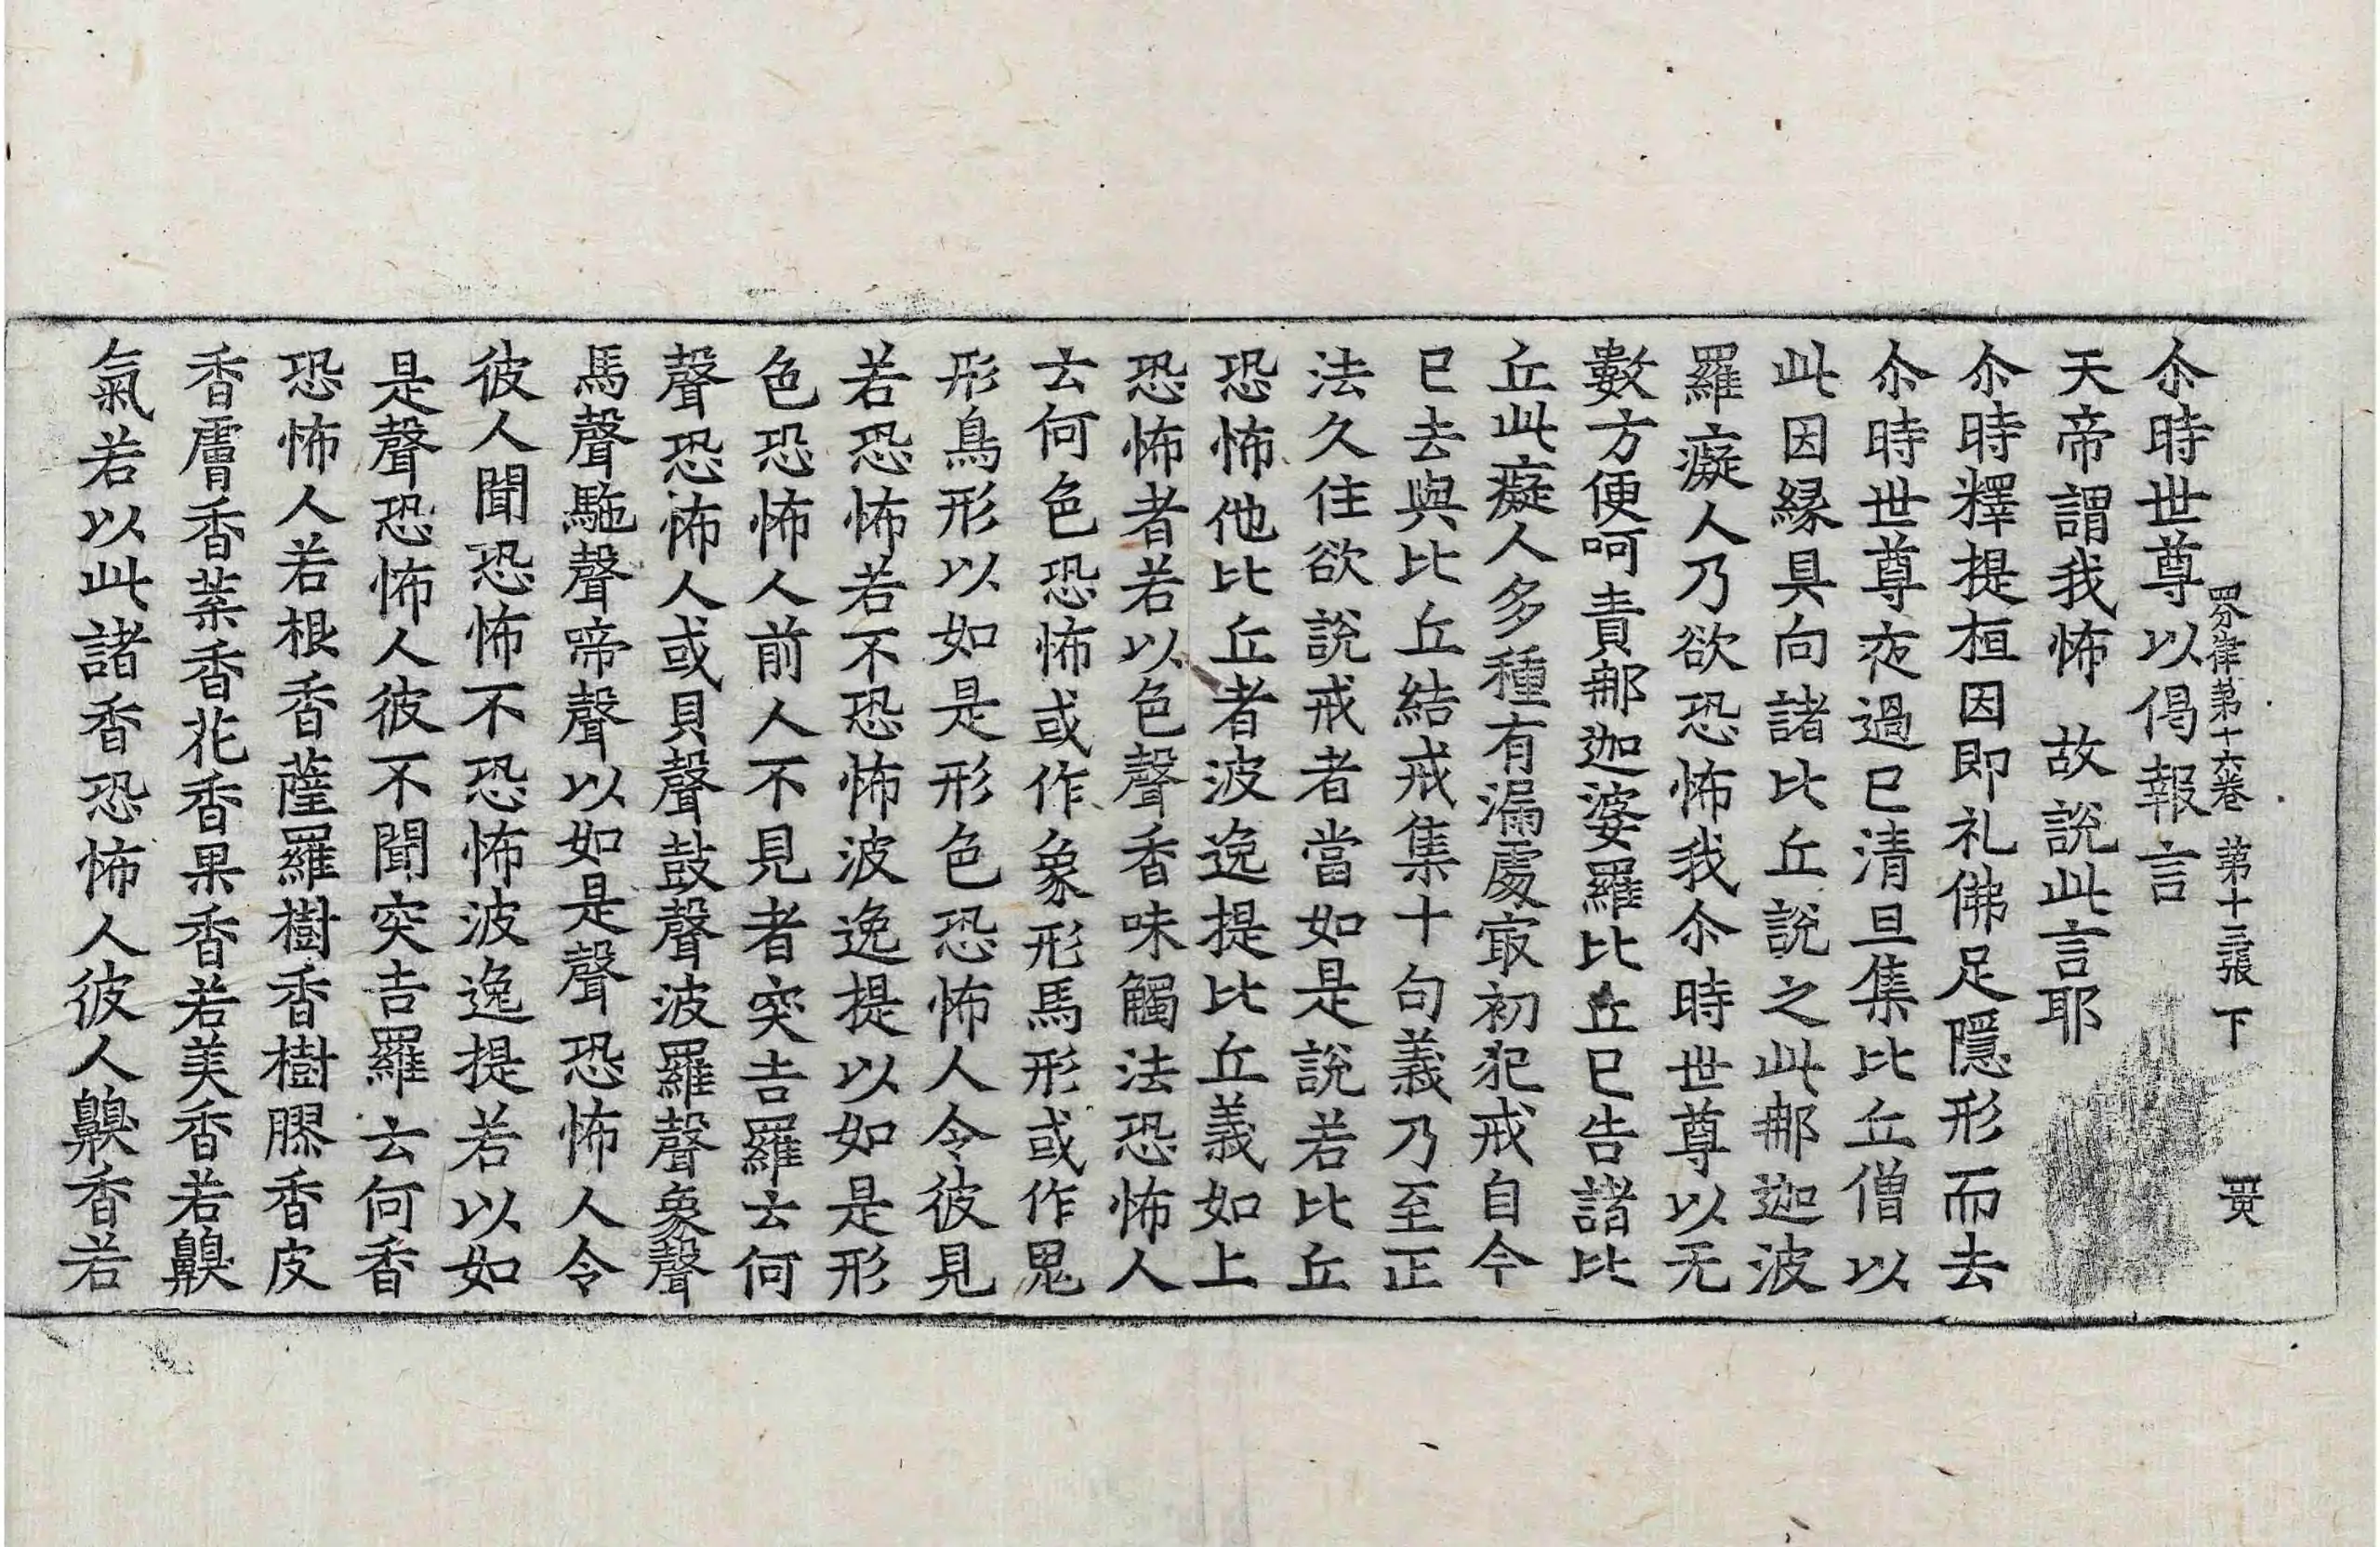 四分律第十六卷 第十三張 下
尒時世尊以偈報言
天帝謂我怖 故說此言耶
尒時釋提桓因即礼佛足隱形而去
尒時世尊夜過已清旦集比丘僧以
此因縁具向諸比丘說之此那迦波
羅癡人乃欲恐怖我尒時世尊以无
數方便呵責那迦婆羅比丘已告諸比
丘此癡人多種有漏處㝡初犯戒自今
已去與比丘結戒集十句義乃至正
法久住欲說戒者當如是說若比丘
恐怖他比丘者波逸提比丘義如上
恐怖者若以色聲香味觸法恐怖人
云何色恐怖或作象形馬形或作鬼
形鳥形以如是形色恐怖人令彼見
若恐怖若不恐怖波逸提以如是形
色恐怖人前人不見者突吉羅云何
聲恐怖人或貝聲鼓聲波羅聲象聲
馬聲駞聲啼聲以如是聲恐怖人令
彼人聞恐怖不恐怖波逸提若以如
是聲恐怖人彼不聞突吉羅云何香
恐怖人若根香薩羅樹香樹膠香皮
香膚香葉香花香果香若美香若齅
氣若以此諸香恐怖人彼人齅香若